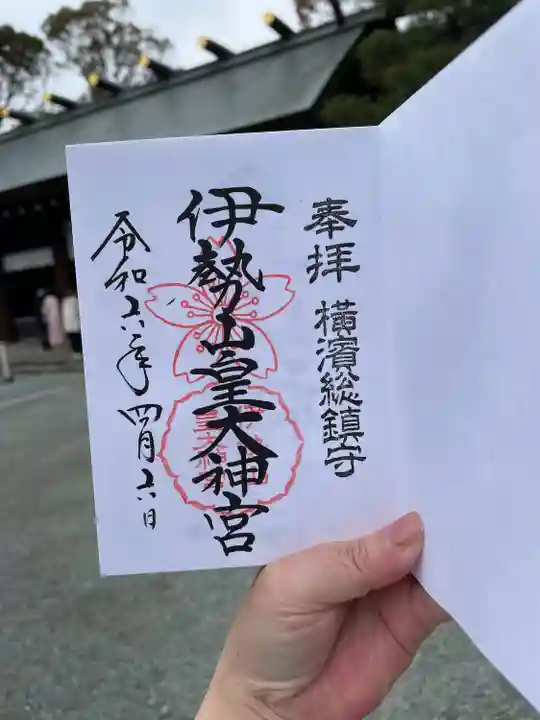 奉拝 横濱総鎮守
伊勢山皇大神宮
令和六年四月六日